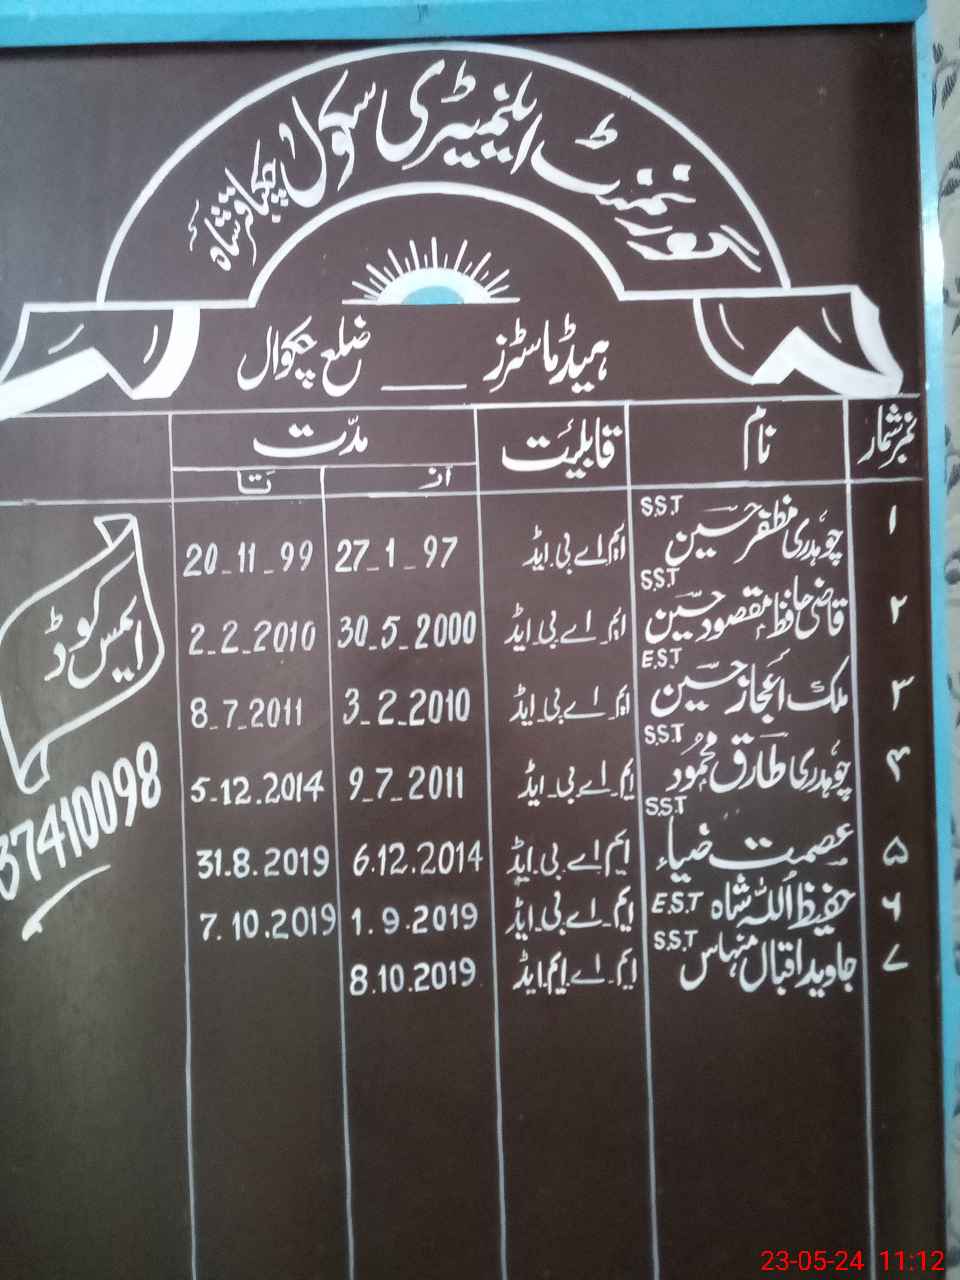 گورنمنٹ ایلیمنٹری سکول چک باقر شاہ
ہیڈ ماسٹرز ____ ضلع چکوال
نمبر شمار نام قابلیت مدّت
از تا
۱ چوہدری مظفر حسین S.S.T ایم اے بی ایڈ 27_1_97 20_11_99
۲ قاضی حافظ مقصود حسین S.S.T ایم اے بی ایڈ 30_5_2000 2_2_2010
۳ ملک اعجاز حسین E.S.T ایم اے بی ایڈ 3_2_2010 8_7_2011
۴ چوہدری طارق محمود S.S.T ایم اے بی ایڈ 9_7_2011 5.12.2014
۵ عصمت ضیاء S.S.T ایم اے بی ایڈ 6.12.2014 31.8.2019
۶ حفیظ اللہ شاہ E.S.T ایم اے بی ایڈ 1.9.2019 7.10.2019
۷ جاوید اقبال منہاس S.S.T ایم اے ایم ایڈ 8.10.2019
ایمس کوڈ
37410098
23-05-24 11:12